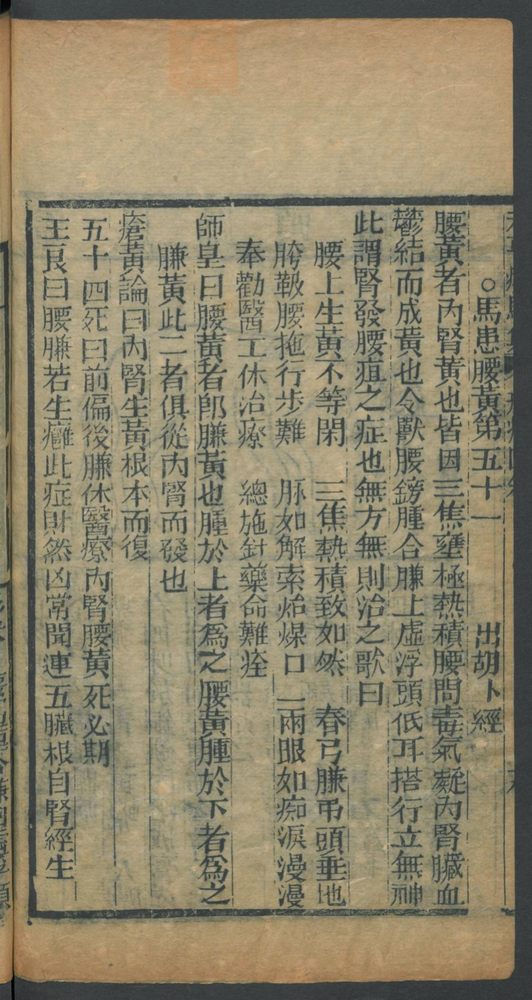 ○馬患腰黃第五十一　出胡卜經
腰黃者內腎黃也皆因三焦壅極熱積腰間毒氣凝內腎臟血
鬱結而成黃也令獸腰鎊腫合膁上虛浮頭低耳搭行立無神
此謂腎發腰疽之症也無方無則治之歌曰
腰上生黃不等閑　三焦熱積致如然　春弓膁吊頭垂地
胯靸腰拖行步難　脉如解索炲煤口　兩眼如痴淚漫漫
奉勸醫工休治療　總施針藥命難痊
師皇曰腰黃者卽膁黃也腫於上者爲之腰黃腫於下者爲之
膁黃此二者俱從內腎而發也
瘡黃論曰內腎生黃根本而復
五十四死曰前偏後膁休醫療內腎腰黃死必期
王良曰腰膁若生癰此症財然凶常聞連五臟根自腎經生